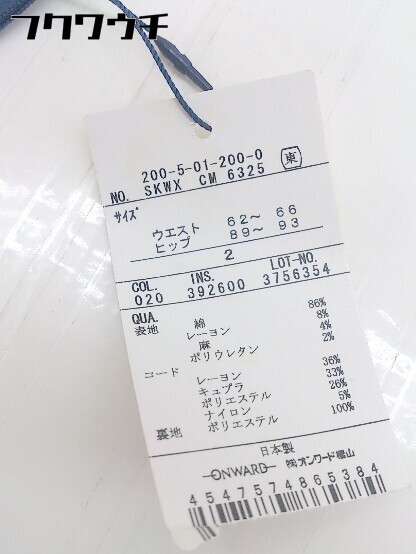 フクワウチ
200-5-01-200-0
NO. SKWX CM 6325 東
サイズ
ウエスト 62～ 66
ヒップ 89～ 93
2
COL. INS. LOT-NO.
020 392600 3756354
QUA.
表地 綿 86%
レーヨン 8%
麻 4%
ポリウレタン 2%
コード レーヨン 36%
キュプラ 33%
ポリエステル 26%
ナイロン 5%
裏地 ポリエステル 100%
日本製
ONWARD ㈱オンワード樫山
4547574865384